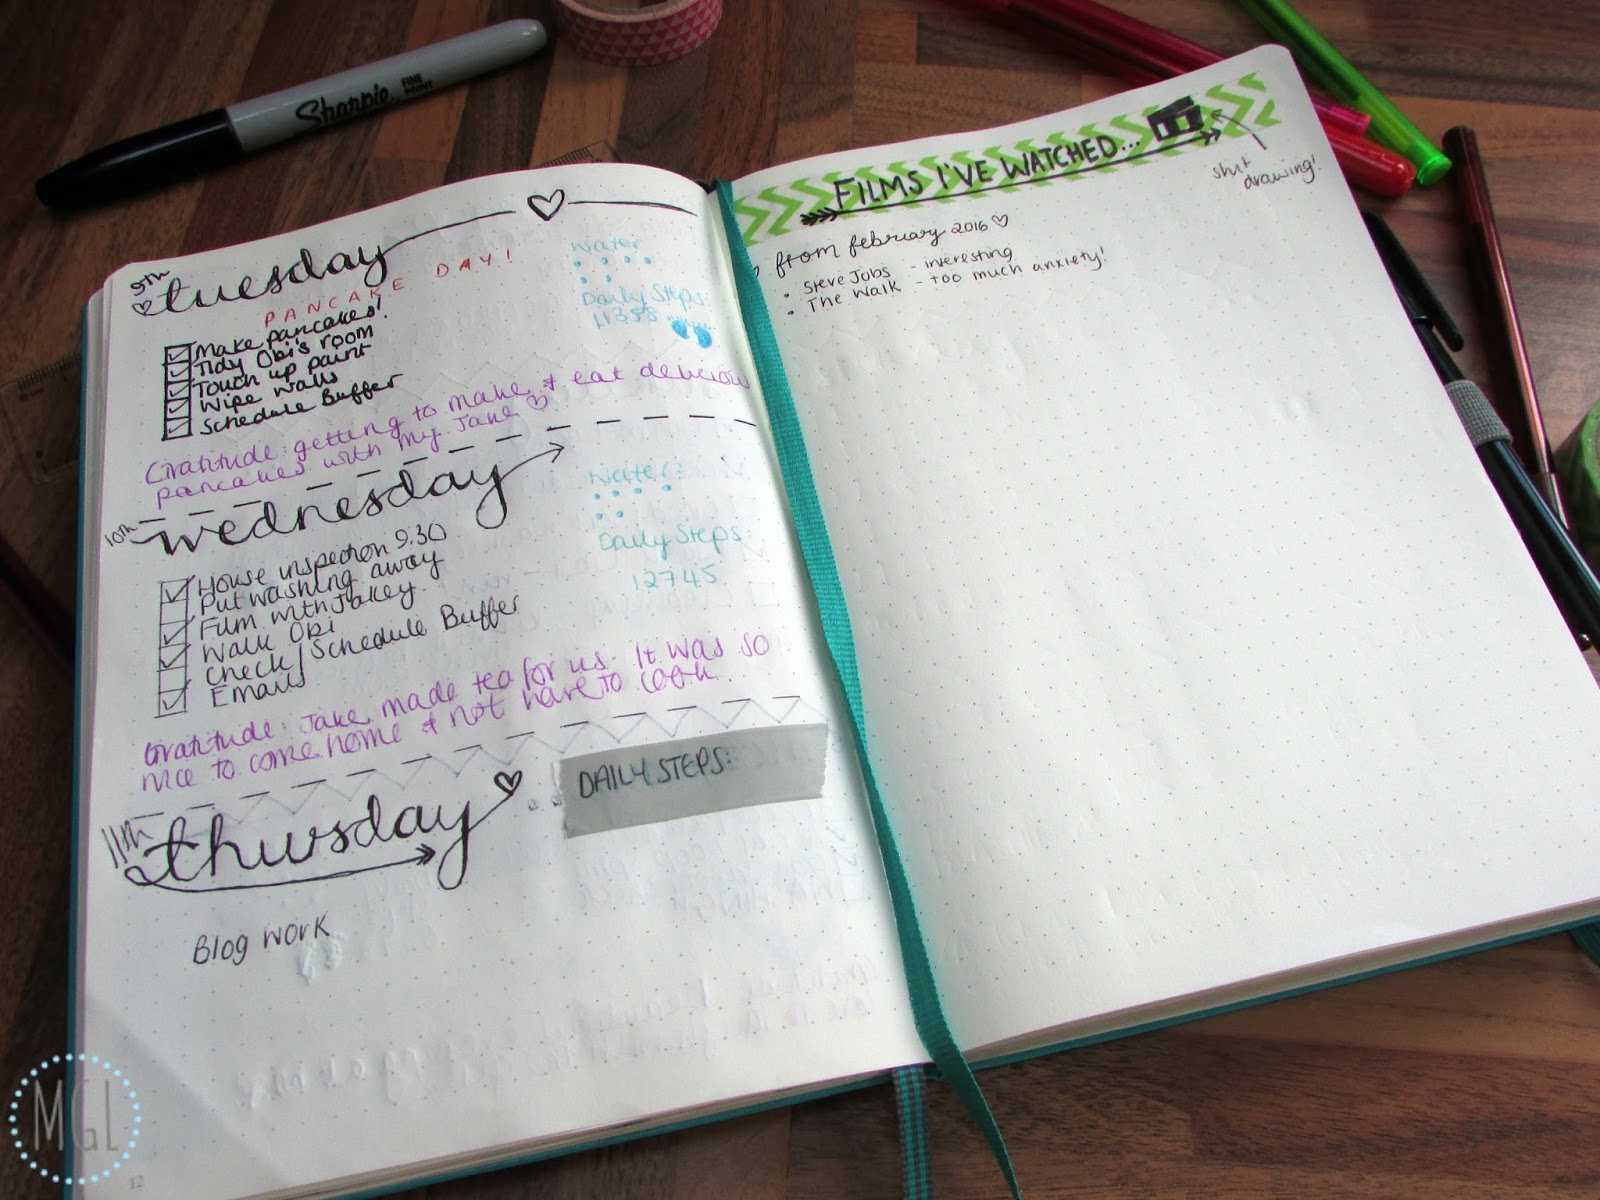 Sharpie.
FINE
POINT
9th
tuesday
PANCAKE DAY!
Make pancakes!
Tidy Obi's room
Touch up paint
Wipe walls
Schedule Buffer
Water
Daily Steps:
11355
Gratitude: getting to make & eat delicious
pancakes with my Jake
10th
wednesday
House inspection 9.30
Put washing away
Film with Jakey
Walk Obi
Check/Schedule Buffer
Emails
Water:
Daily Steps:
12745
Gratitude: Jake made tea for us. It was so
nice to come home & not have to cook.
11th
thursday
DAILY STEPS:
Blog work
12
FILMS I'VE WATCHED...
shit
drawing!
from february 2016
• Steve Jobs - interesting
• The Walk - too much anxiety!
MGL